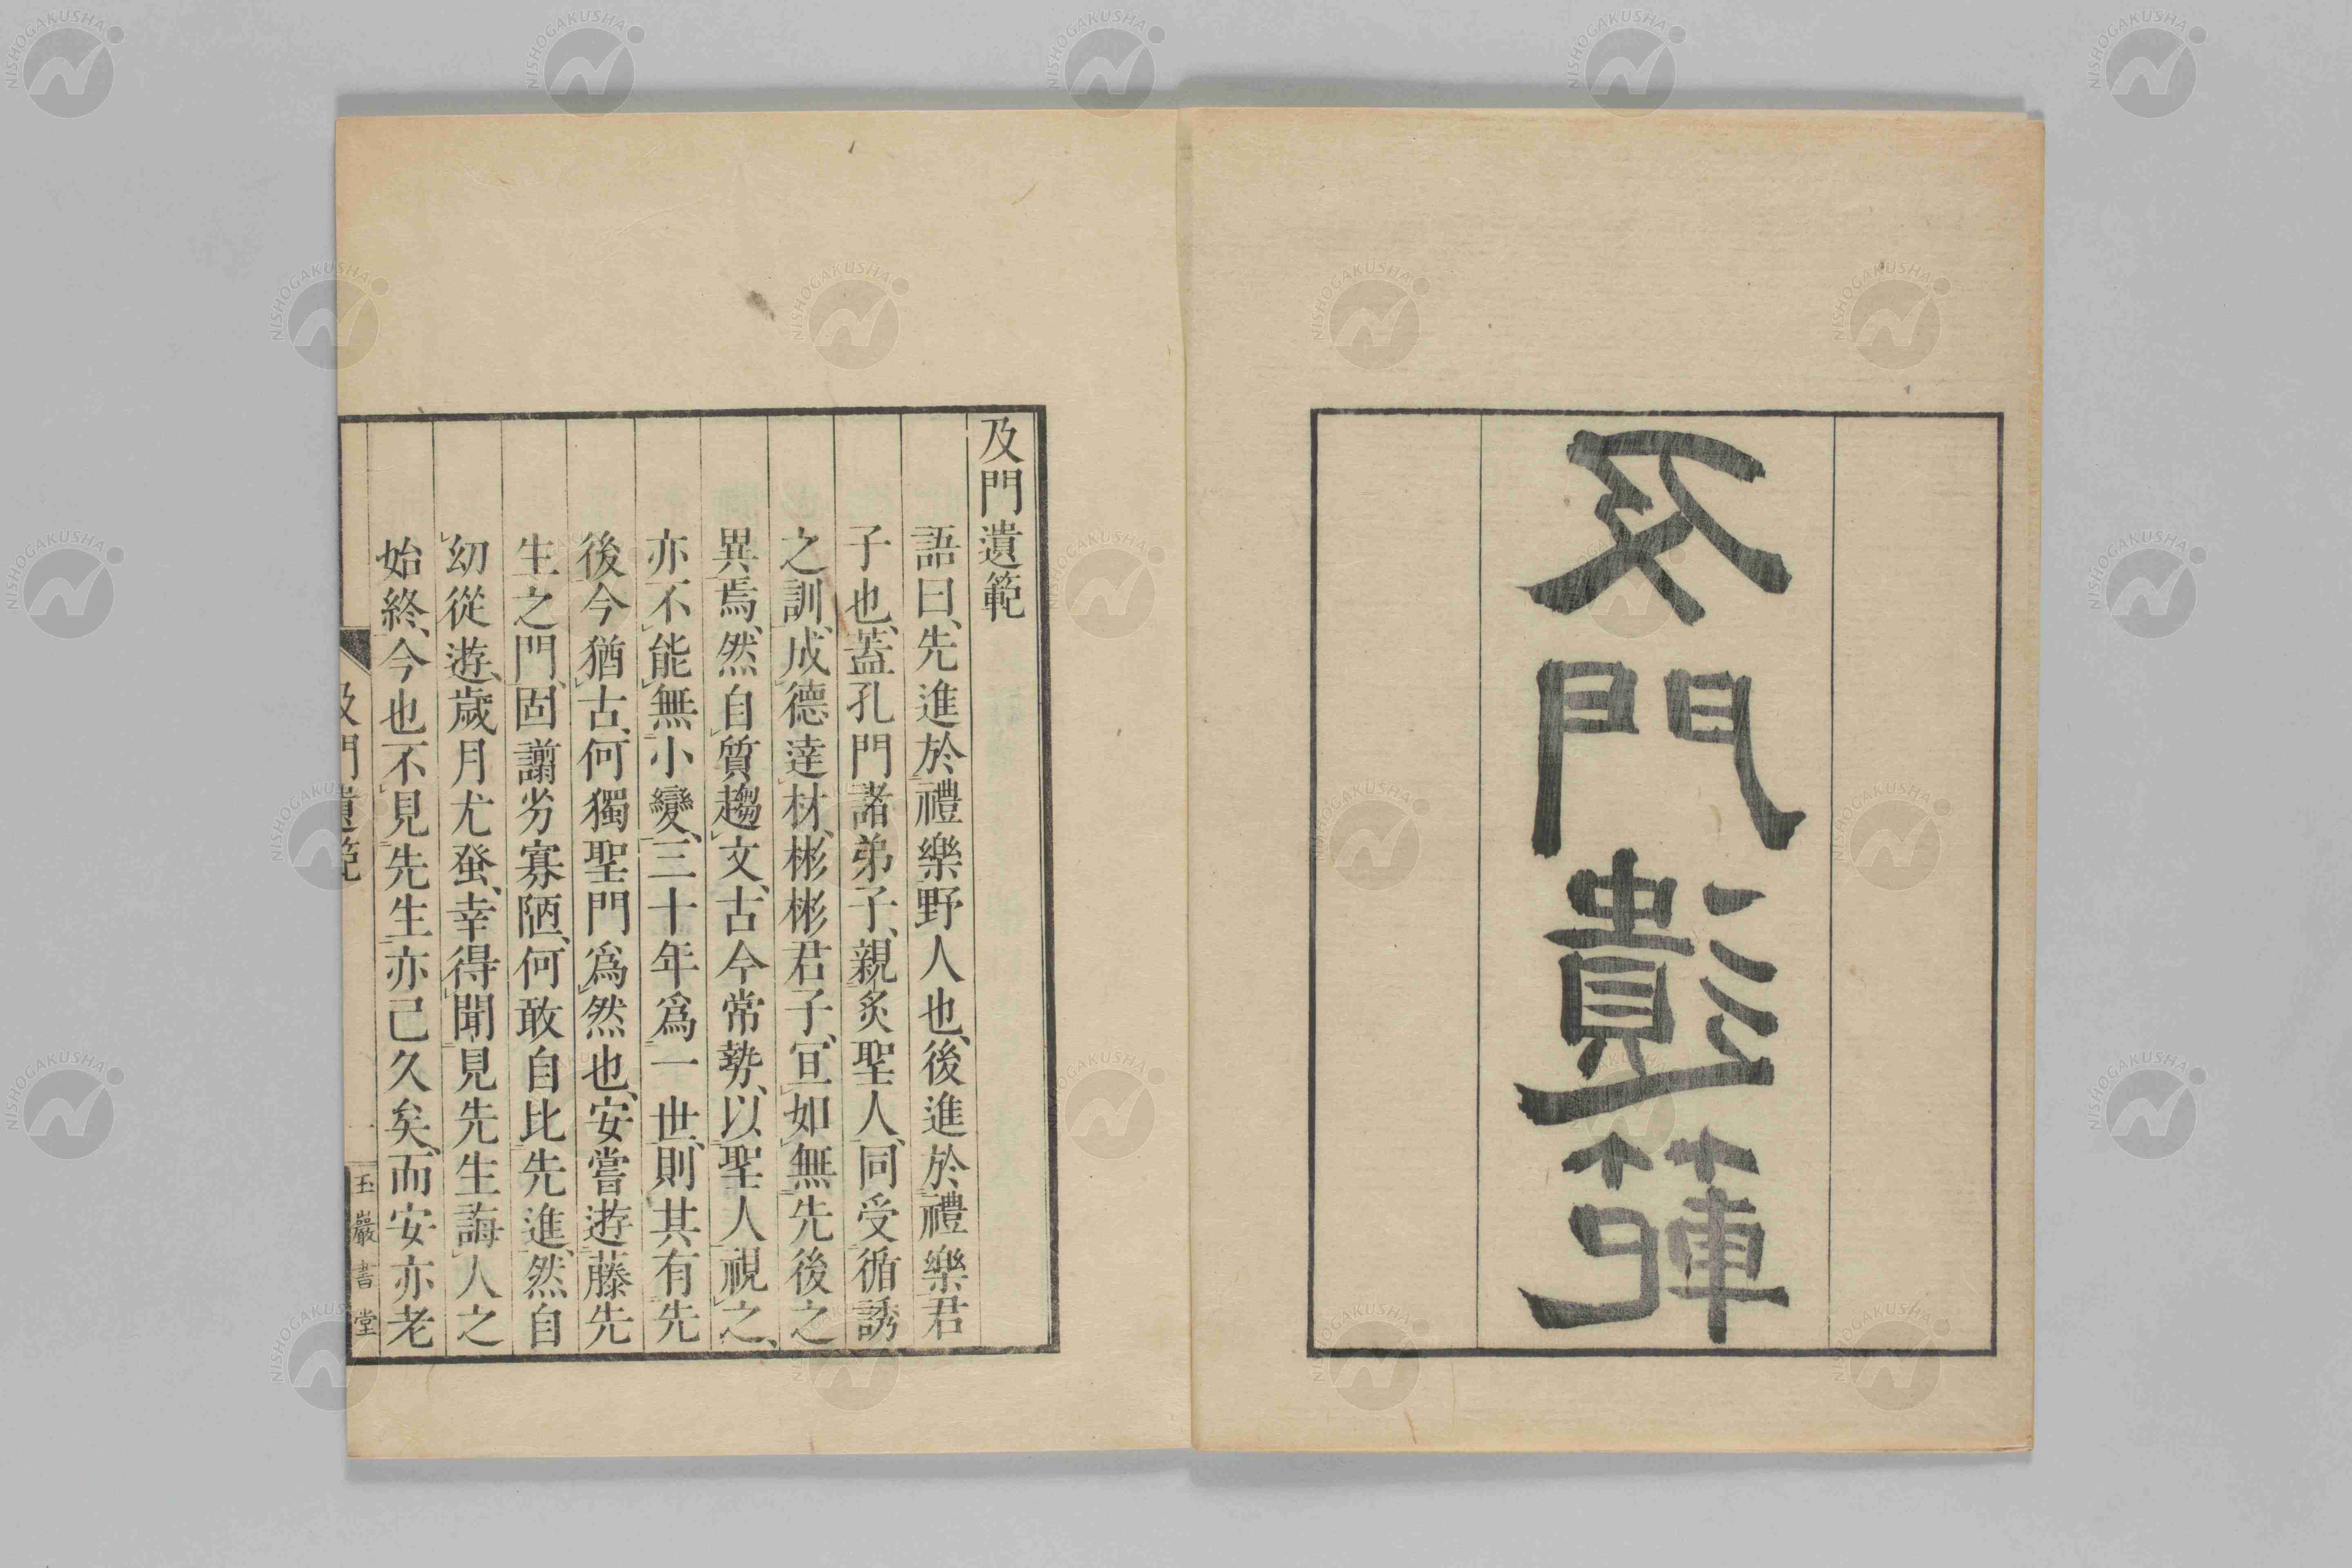 及門遺範
及門遺範
語曰、先進於禮樂野人也、後進於禮樂君
子也、蓋孔門諸弟子、親炙聖人、同受循誘
之訓、成德達材、彬彬君子、宜如無先後之
異焉、然自質趨文、古今常勢、以聖人視之、
亦不能無小變、三十年爲一世、則其有先
後今猶古、何獨聖門爲然也、安嘗遊藤先
生之門、固謭劣寡陋、何敢自比先進、然自
幼從遊、歲月尤發、幸得聞見先生誨人之
始終、今也不見先生亦已久矣、而安亦老
及門遺範
一
玉巖書堂
NISHOGAKUSHA